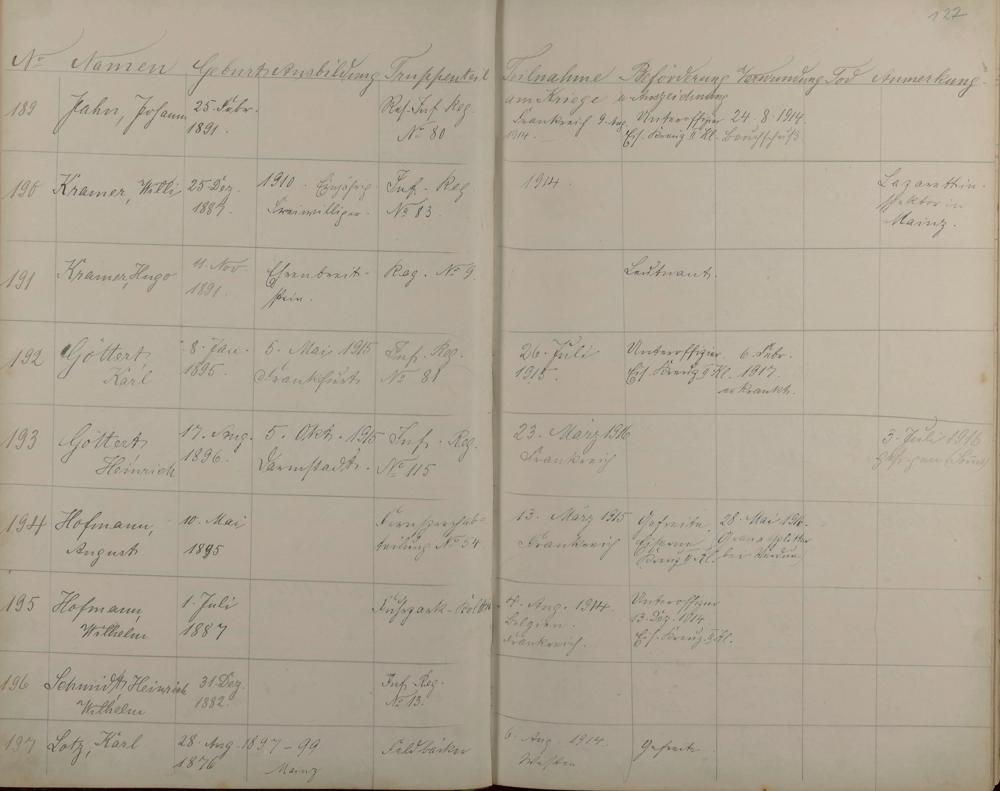 127
No Namen Geburt Ausbildung Truppenteil Teilnahme am Kriege Beförderung u. Auszeichnung Verwundung Tod Anmerkung
189 Jahn, Johann 25. Febr. 1891. Res. Inf. Reg. No 80 Frankreich 9. Aug. 1914. Unteroffizier Eis. Kreuz II Kl. 24. 8. 1914. Bauchschuß
190 Kramer, Willi 25. Dez. 1887. 1910 Einjährig Freiwilliger. Inf. Reg. No 83. 1914. Lazarettin-
spektor in
Mainz.
191 Kramer, Hugo 11. Nov. 1891. Ehrenbreit-
stein. Reg. No 9. Leutnant.
192 Göttert Karl 8. Jan. 1895. 5. Mai 1915 Frankfurt Inf. Reg. No 81 26. Juli 1915. Unteroffizier Eis. Kreuz II Kl. 6. Febr. 1917. erkrankt.
193 Göttert Heinrich 17. Aug. 1896. 5. Okt. 1915 Darmstadt. Inf. Reg. No 115 23. März 1916 Frankreich 3. Juli 1916
194 Hofmann, August 10. Mai 1895 Fernsprechab-
teilung No 54 13. März 1915 Frankreich Gefreite Eiserne Kreuz II Kl. 28. Mai Granatsplitter bei Verdun
195 Hofmann, Wilhelm 1. Juli 1887 Fuhrpark-Kol. 4. Aug. 1914. Belgien. Frankreich. Unteroffizier 13. Dez. 1914. Eis. Kreuz II Kl.
196 Schmidt, Heinrich Wilhelm 31. Dez. 1882. Inf. Reg. No 13.
197 Lotz, Karl 28. Aug. 1876 1897-99 Mainz Feldbäcker 6. Aug. 1914. Westen Gefreite